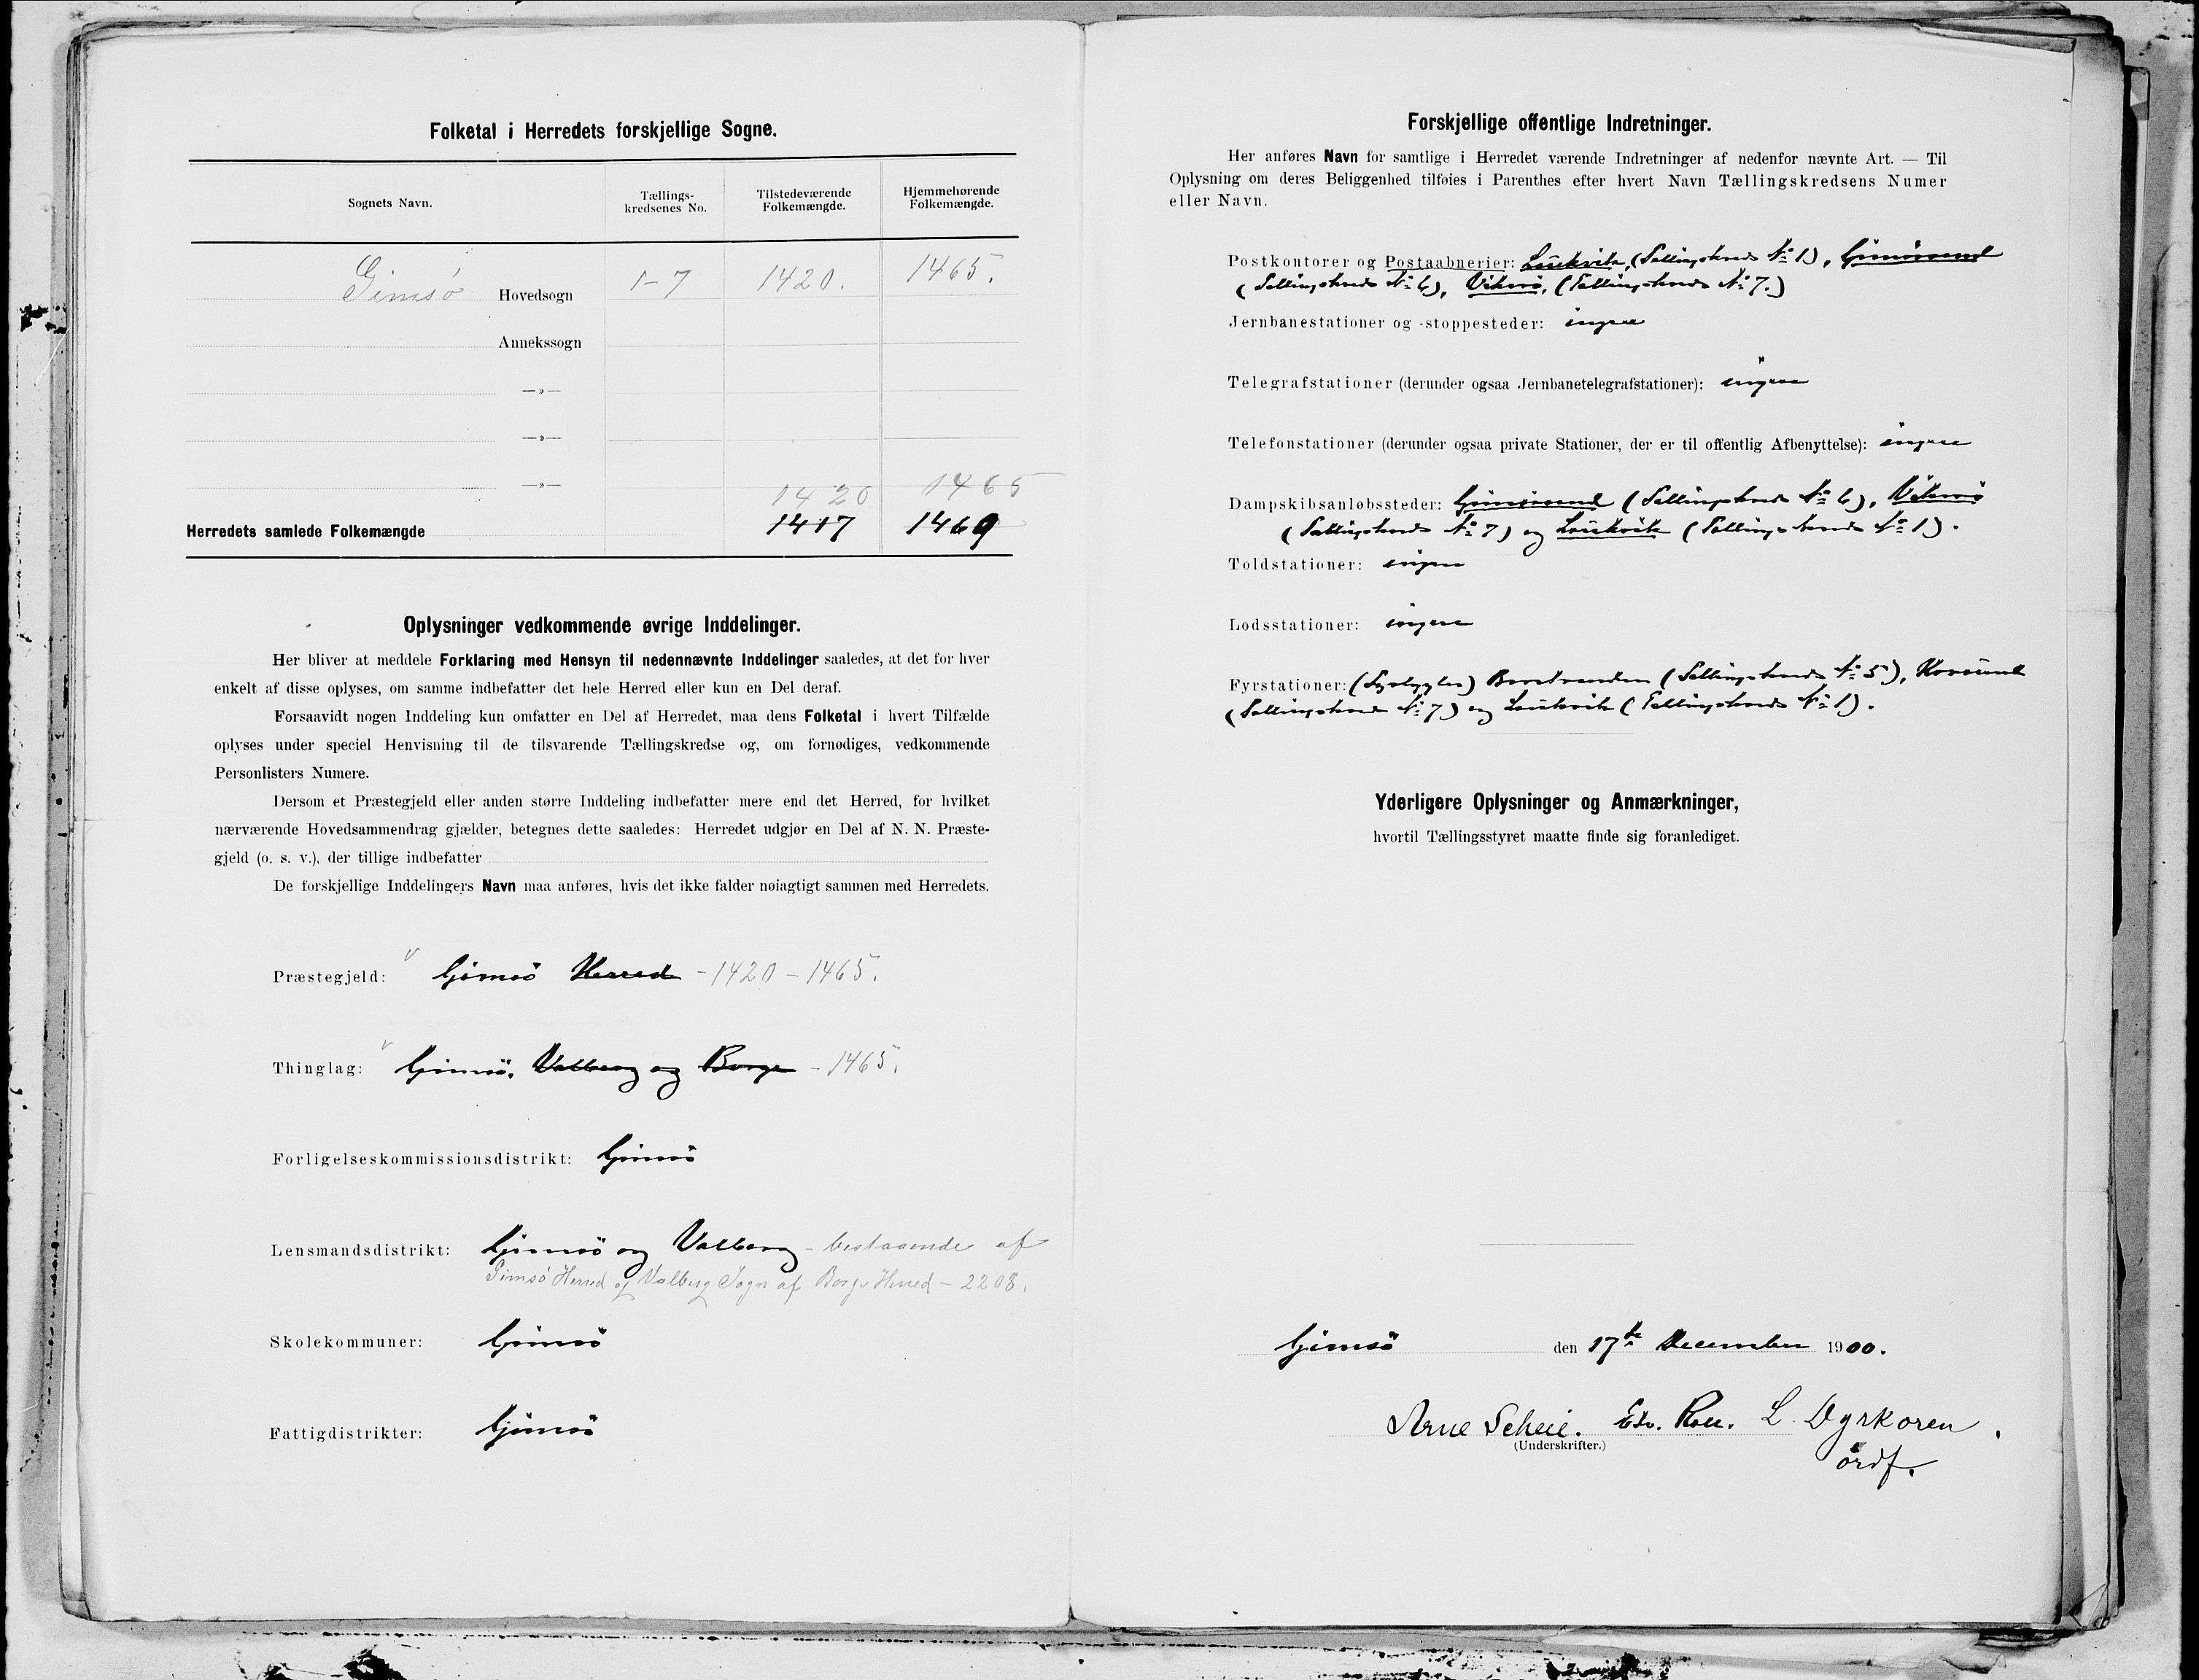 Folketal i Herredets forskjellige Sogne.
Sognets Navn. Tællings-kredsenes No. Tilstedeværende Folkemængde. Hjemmehørende Folkemængde.
Gimsø Hovedsogn 1-7 1420. 1465.
Annekssogn
—»—
—»—
—»—
1420 1465
Herredets samlede Folkemængde 1417 1469
Oplysninger vedkommende øvrige Inddelinger.
Her bliver at meddele Forklaring med Hensyn til nedennævnte Inddelinger saaledes, at det for hver
enkelt af disse oplyses, om samme indbefatter det hele Herred eller kun en Del deraf.
Forsaavidt nogen Inddeling kun omfatter en Del af Herredet, maa dens Folketal i hvert Tilfælde
oplyses under speciel Henvisning til de tilsvarende Tællingskredse og, om fornødiges, vedkommende
Personlisters Numere.
Dersom et Præstegjeld eller anden større Inddeling indbefatter mere end det Herred, for hvilket
nærværende Hovedsammendrag gjælder, betegnes dette saaledes: Herredet udgjør en Del af N. N. Præste-
gjeld (o. s. v.), der tillige indbefatter
De forskjellige Inddelingers Navn maa anføres, hvis det ikke falder nøiagtigt sammen med Herredets.
Præstegjeld: Gimsö Herred - 1420 - 1465.
Thinglag: Gimsö, Valberg og Borge - 1465.
Forligelseskommissionsdistrikt: Gimsö
Lensmandsdistrikt: Gimsö og Valberg - bestaaende af
Gimsö Herred og Valberg Sogn af Borge Herred - 2208.
Skolekommuner: Gimsö
Fattigdistrikter: Gimsö
Forskjellige offentlige Indretninger.
Her anføres Navn for samtlige i Herredet værende Indretninger af nedenfor nævnte Art. — Til
Oplysning om deres Beliggenhed tilføies i Parenthes efter hvert Navn Tællingskredsens Numer
eller Navn.
Postkontorer og Postaabnerier: Laukvik, (Tællingskreds No 1), Gimsösund
(Tællingskreds No 6), Vikerö, (Tællingskreds No 7.)
Jernbanestationer og -stoppesteder: ingen
Telegrafstationer (derunder ogsaa Jernbanetelegrafstationer): ingen
Telefonstationer (derunder ogsaa private Stationer, der er til offentlig Afbenyttelse): ingen
Dampskibsanløbssteder: Gimsösund (Tællingskreds No 6), Vikerö
(Tællingskreds No 7) og Laukvik (Tællingskreds No 1).
Toldstationer: ingen
Lodsstationer: ingen
Fyrstationer: (Fyrlygter) Barstranden (Tællingskreds No 5),
(Tællingskreds No 7) og Laukvik (Tællingskreds No 1).
Yderligere Oplysninger og Anmærkninger,
hvortil Tællingsstyret maatte finde sig foranlediget.
Gimsö den 17de December 1900.
Arne Scheie. L. Dyrkoren
(Underskrifter.)
ordf.